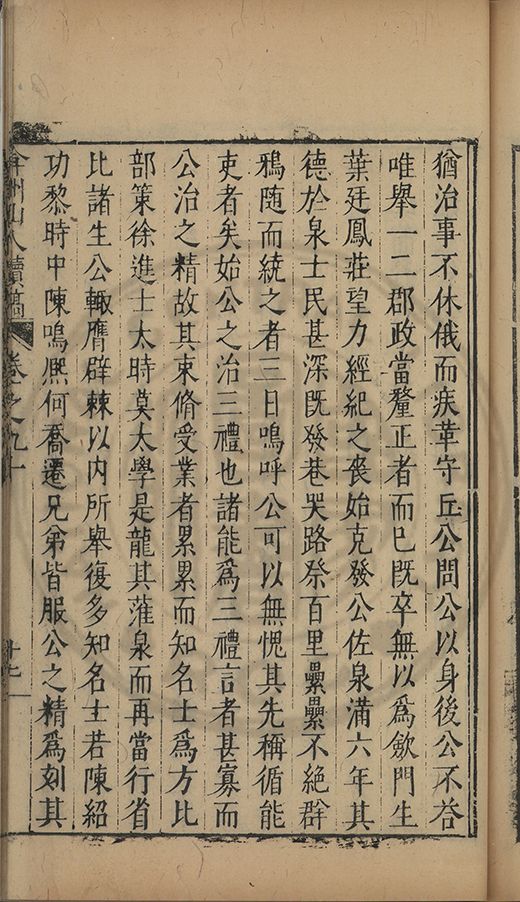 猶治事不休俄而疾革守丘公問公以身後公不荅
唯舉一二郡政當釐正者而巳既卒無以爲歛門生
葉廷鳳莊望力經紀之喪始克發公佐泉滿六年其
德於泉士民甚深既發巷哭路祭百里纍纍不絶群
鴉随而統之者三日嗚呼公可以無愧其先稱循能
吏者矣始公之治三禮也諸能爲三禮言者甚寡而
公治之精故其束脩受業者累累而知名士爲方比
部策徐進士太時莫太學是龍其蒞泉而再當行省
比諸生公輙膺辟棘以内所舉復多知名士若陳紹
功黎時中陳鳴熈何喬遷兄弟皆服公之精爲刻其
弇州山人續稿 卷之九十